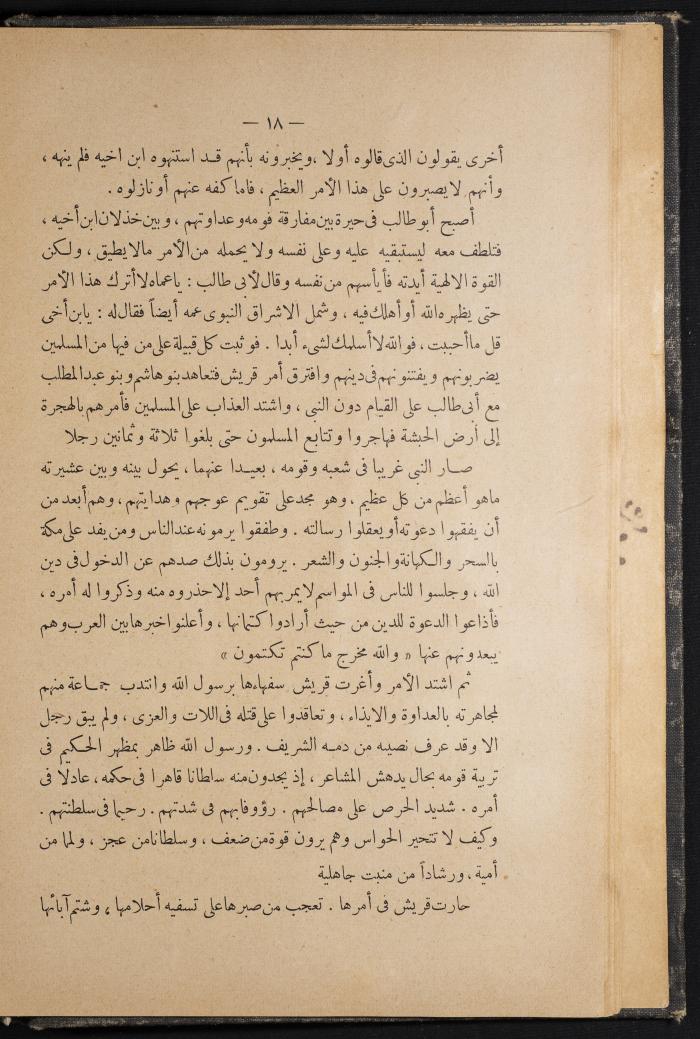 — ١٨ —
أخرى يقولون الذى قالوه أولا ، ويخبرونه بأنهم قد استنهوه ابن اخيه فلم ينهه ،
وأنهم لا يصبرون على هذا الأمر العظيم ، فاما كفه عنهم أو نازلوه .
أصبح أبو طالب فى حيرة بين مفارقة قومه وعداوتهم ، وبين خذلان ابن أخيه ،
فتلطف معه ليستبقيه عليه وعلى نفسه ولا يحمله من الأمر مالا يطيق ، ولكن
القوة الالهية أيدته فأيأسهم من نفسه وقال لأبى طالب : يا عماه لا أترك هذا الأمر
حتى يظهره الله أو أهلك فيه ، وشمل الاشراق النبوى عمه أيضاً فقال له : يابن أخى
قل ما أحببت ، فوالله لا أسلمك لشىء أبدا . فوثبت كل قبيلة على من فيها من المسلمين
يضربونهم ويفتنونهم فى دينهم وافترق أمر قريش فتعاهد بنو هاشم وبنو عبد المطلب
مع أبى طالب على القيام دون النبى ، واشتد العذاب على المسلمين فأمرهم بالهجرة
إلى أرض الحبشة فهاجروا وتتابع المسلمون حتى بلغوا ثلاثة وثمانين رجلا
صار النبى غريبا فى شعبه وقومه ، بعيدا عنهما ، يحول بينه وبين عشيرته
ماهو أعظم من كل عظيم ، وهو مجد على تقويم عوجهم وهدايتهم ، وهم أبعد من
أن يفقهوا دعوته أو يعقلوا رسالته . وطفقوا يرمونه عند الناس ومن يفد على مكة
بالسحر والكهانة والجنون والشعر . يرومون بذلك صدهم عن الدخول فى دين
الله ، وجلسوا للناس فى المواسم لا يمر بهم أحد إلا حذروه منه وذكروا له أمره ،
فأذاعوا الدعوة للدين من حيث أرادوا كتمانها ، وأعلنوا خبرها بين العرب وهم
يبعدونهم عنها « والله مخرج ما كنتم تكتمون »
ثم اشتد الأمر وأغرت قريش سفهاءها برسول الله وانتدب جماعة منهم
لمجاهرته بالعداوة والايذاء ، وتعاقدوا على قتله فى اللات والعزى ، ولم يبق رجل
الا وقد عرف نصيبه من دمه الشريف . ورسول الله ظاهر بمظهر الحكيم فى
تربية قومه بحال يدهش المشاعر ، إذ يجدون منه سلطانا قاهرا فى حكمه ، عادلا فى
أمره . شديد الحرص على مصالحهم . رؤوفا بهم فى شدتهم . رحيما فى سلطنتهم .
وكيف لا تتحير الحواس وهم يرون قوة من ضعف ، وسلطانا من عجز ، ولما من
أمية ، ورشاداً من منبت جاهلية
حارت قريش فى أمرها . تعجب من صبرها على تسفيه أحلامها ، وشتم آبائها